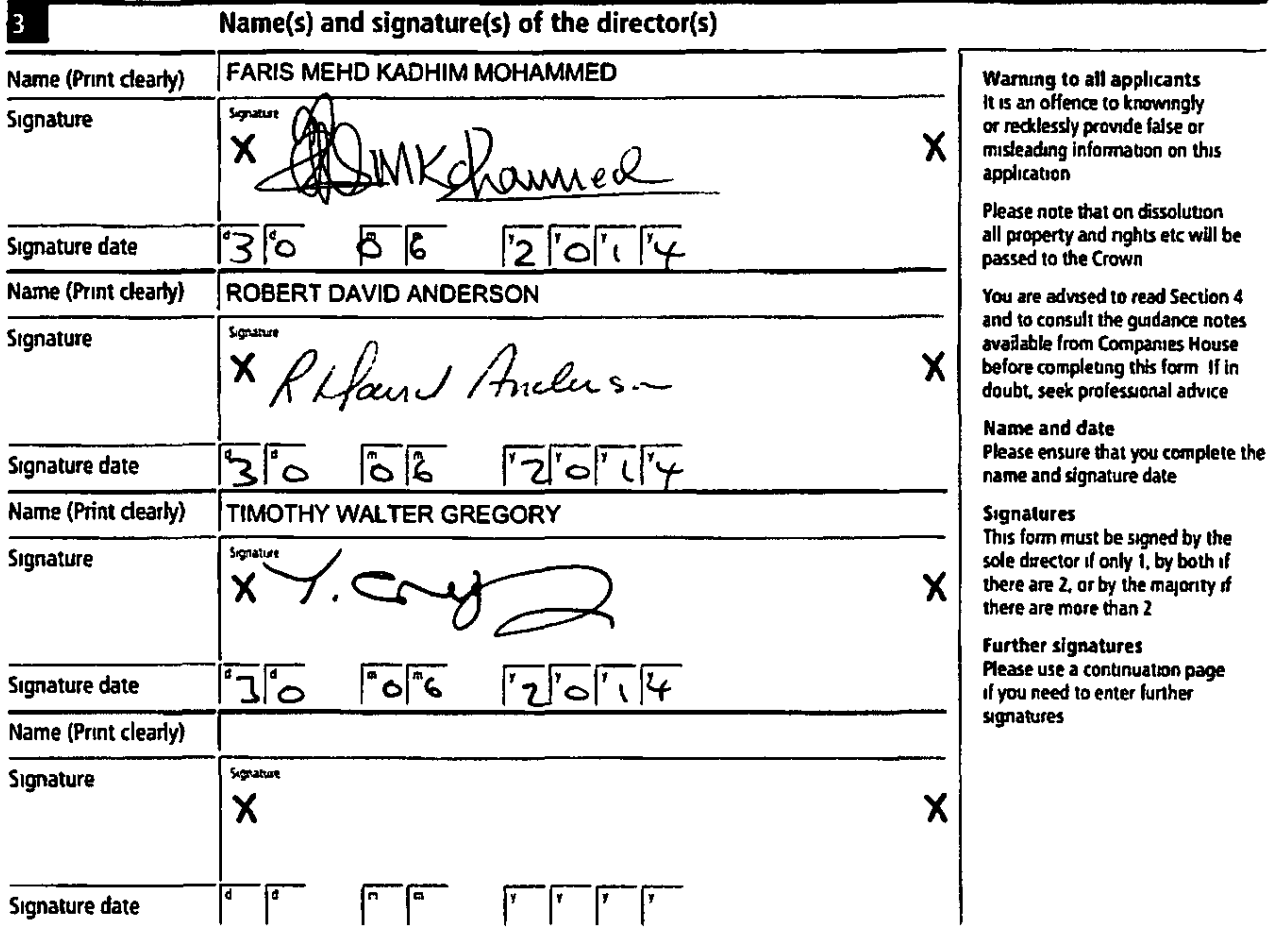 3 Name(s) and signature(s) of the director(s)
Name (Print clearly) FARIS MEHD KADHIM MOHAMMED
Signature Signature
X X
Signature date d3 d0 m0 m6 y2 y0 y1 y4
Name (Print clearly) ROBERT DAVID ANDERSON
Signature Signature
X R David Anderson X
Signature date d3 d0 m0 m6 y2 y0 y1 y4
Name (Print clearly) TIMOTHY WALTER GREGORY
Signature Signature
X X
Signature date d3 d0 m0 m6 y2 y0 y1 y4
Name (Print clearly)
Signature Signature
X X
Signature date d d m m y y y y
Warning to all applicants
It is an offence to knowingly
or recklessly provide false or
misleading information on this
application
Please note that on dissolution
all property and rights etc will be
passed to the Crown
You are advised to read Section 4
and to consult the guidance notes
available from Companies House
before completing this form If in
doubt, seek professional advice
Name and date
Please ensure that you complete the
name and signature date
Signatures
This form must be signed by the
sole director if only 1, by both if
there are 2, or by the majority if
there are more than 2
Further signatures
Please use a continuation page
if you need to enter further
signatures